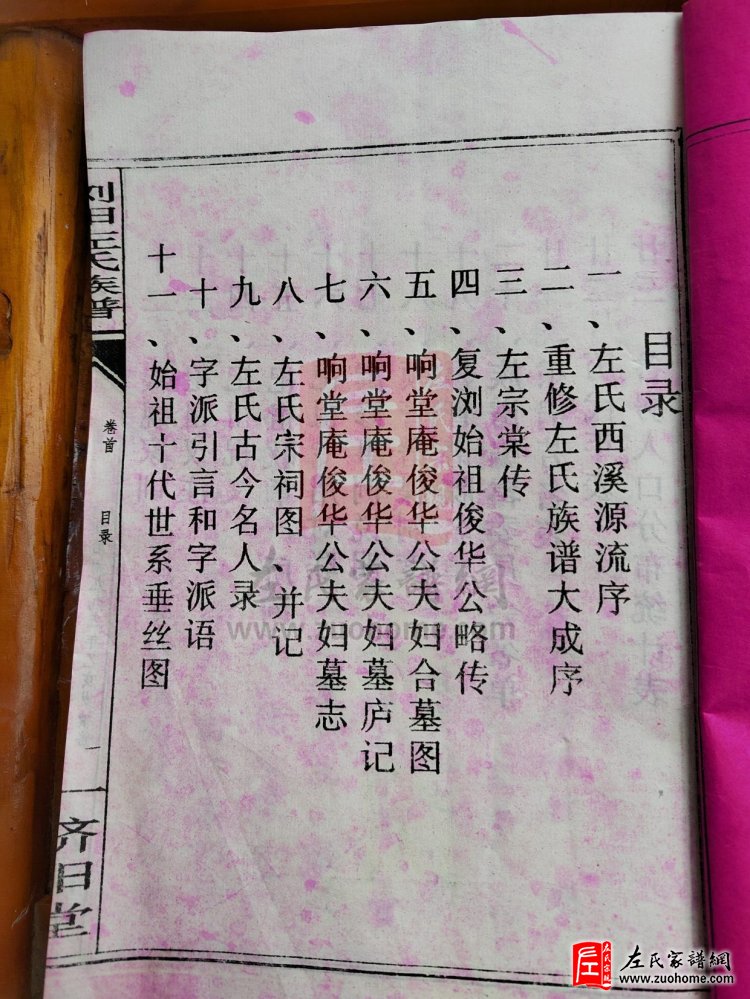 目录
一、左氏西溪源流序
二、重修左氏族谱大成序
三、左宗棠传
四、复浏始祖俊华公略传
五、响堂庵俊华公夫妇合墓图
六、响堂庵俊华公夫妇墓庐记
七、响堂庵俊华公夫妇墓志
八、左氏宗祠图、并记
九、左氏古今名人录
十、字派引言和字派语
十一、始祖十代世系垂丝图
左氏族谱
卷首
目录
一
左氏家譜網
www.zuohome.com
左氏家譜網
www.zuohome.com